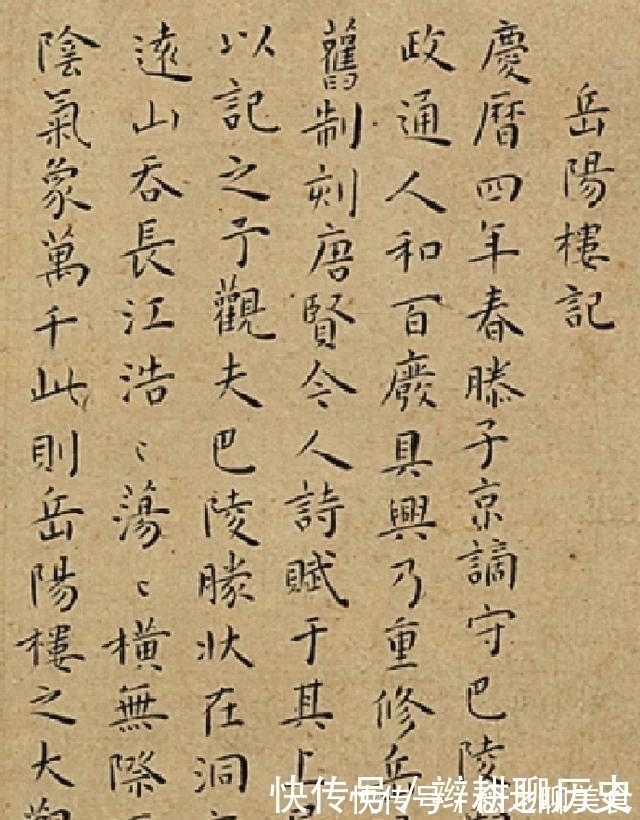 岳陽樓記
慶曆四年春滕子京謫守巴陵
政通人和百廢具興乃重修岳
舊制刻唐賢今人詩賦于其上
以記之予觀夫巴陵勝狀在洞
遠山吞長江浩〻蕩〻橫無際
陰氣象萬千此則岳陽樓之大觀
快传号/辫耕聊历史
快传号 聊美食